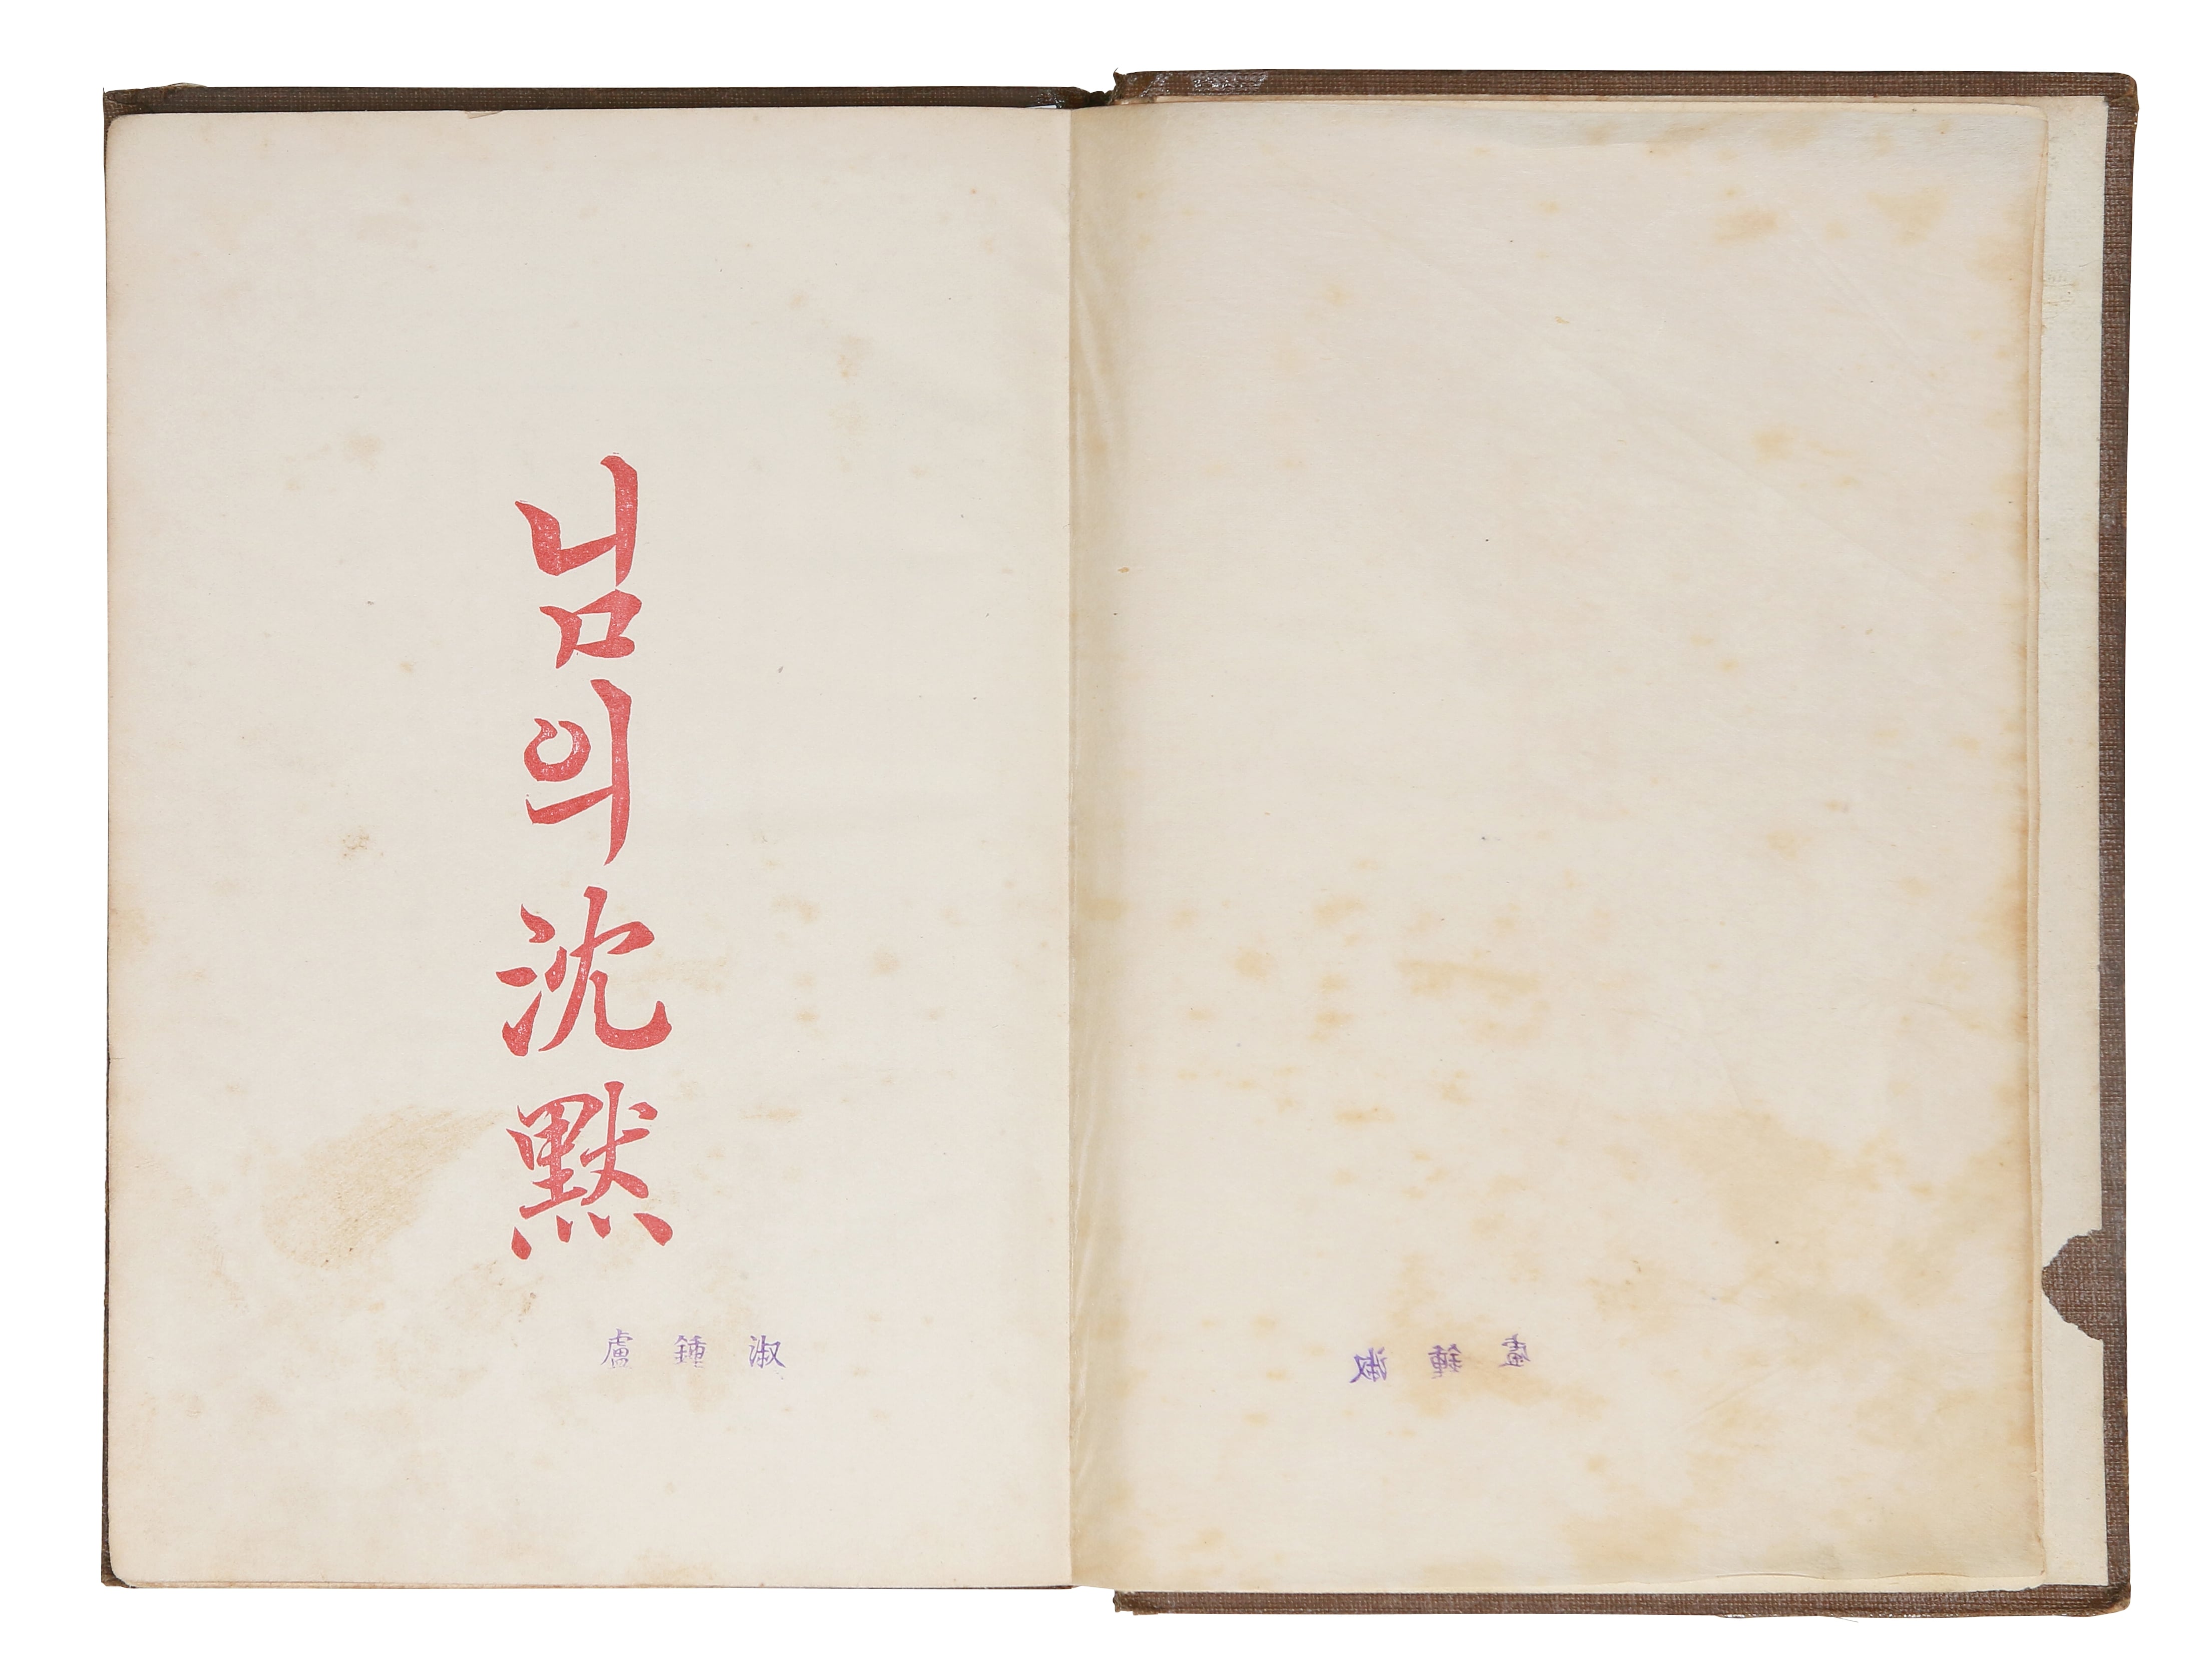 님의沈默
盧鍾淑
盧鍾淑